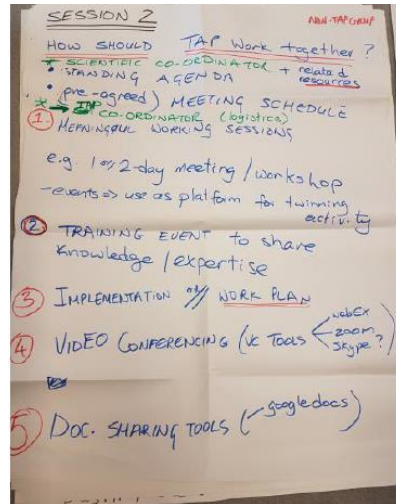 SESSION 2
NON-TAP GROUP
HOW SHOULD TAP Work together?
* SCIENTIFIC CO-ORDINATOR + related resources
• STANDING AGENDA
• (pre-agreed) MEETING SCHEDULE
* → TAP CO-ORDINATOR (logistics)
1. MEANINGFUL WORKING SESSIONS
e.g. 1 or 2-day meeting / workshop
-events => use as platform for twinning
activity
2. TRAINING EVENT to share
Knowledge / expertise
3 IMPLEMENTATION of WORK PLAN
4 VIDEO CONFERENCING (VC TOOLS
webEx
zoom
skype?)
5) DOC. SHARING TOOLS (googledocs)